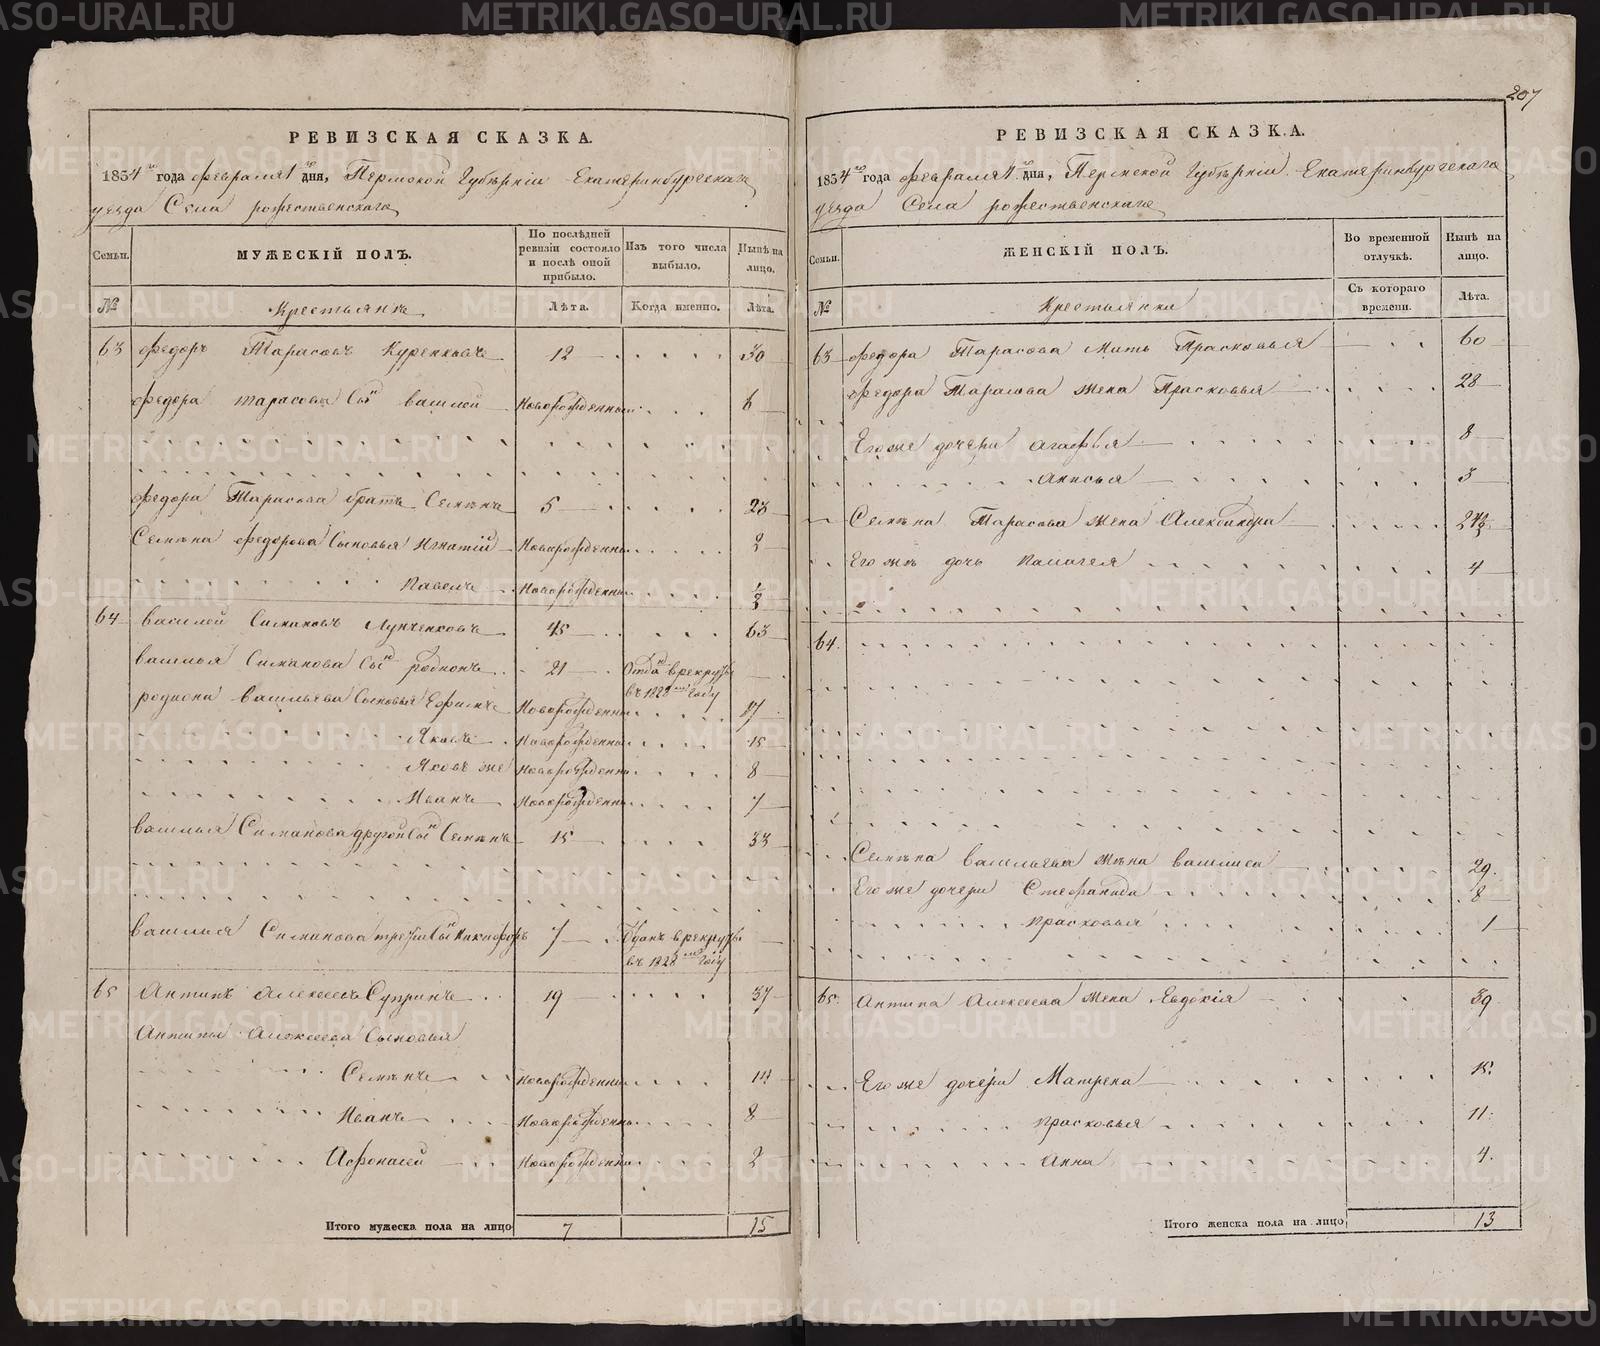 207
РЕВИЗСКАЯ СКАЗКА.
1834 го года февраля 1 го дня, Пермской Губѣрніи Екатеринбургскаго
уезда Села рожественскаго
Семьи.
МУЖЕСКІЙ ПОЛЪ.
По послѣдней ревизіи состояло и послѣ оной прибыло.
Изъ того числа выбыло.
Нынѣ на лицо.
№
Крестьянъ
Лѣта.
Когда именно.
Лѣта.
63 федоръ Тарасовъ 12 30
федора тарасова Сынъ василей новорожденны 6
федора Тарасова братъ Семѣнъ 5 23
Семѣна федорова Сыновья Игнатій новорожденны 2
Павелъ новорожденны 1/2
64 василей Симановъ Лунченковъ 45 63
василья Симанова Сынъ родионъ 21 Отданъ в рекруты
въ 1828 мъ году
родиона васильева Сыновья Ефимъ новорожденны 17
Яковъ новорожденны 15
Яковъ же новорожденны 8
Иванъ новорожденны 7
василья Симанова другой Сынъ Семѣнъ 15 33
василья Симанова третій Сынъ Никифоръ 7 в рекруты
въ 1828 мъ году
65 Антипъ Алексеевъ Супринъ 19 37
Антипы Алексеева Сыновья
Семѣнъ новорожденны 14
Иванъ новорожденны 8
Афонасей новорожденны 2
Итого мужеска пола на лицо 7 15
РЕВИЗСКАЯ СКАЗКА.
1834 го года февраля 1 го дня, Пермской Губѣрніи Екатеринбургскаго
уезда Села рожественскаго
Семьи.
ЖЕНСКІЙ ПОЛЪ.
Во временной отлучкѣ.
Нынѣ на лицо.
№
Крестьянки
Съ котораго времени.
Лѣта.
63 федора Тарасова Мать Прасковья 60
федора Тарасова жена Прасковья 28
Его же дочери агафья 8
анисья 3
Семѣна Тарасова жена Александра 24 1/2
Его же дочь 4
64.
Семѣна васильева жѣна василиса 29.
Его же дочери Стефанида 8
прасковья 1
65. Антипа Алексеева жена Евдокія 39
Его же дочери Матрена 15.
прасковья 11.
анна 4.
Итого женска пола на лицо 13
METRIKI.GASO-URAL.RU